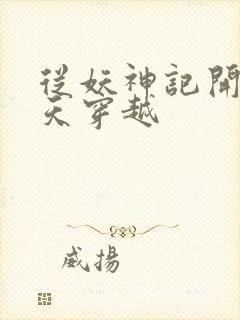 從妖神記開
天穿越
威揚